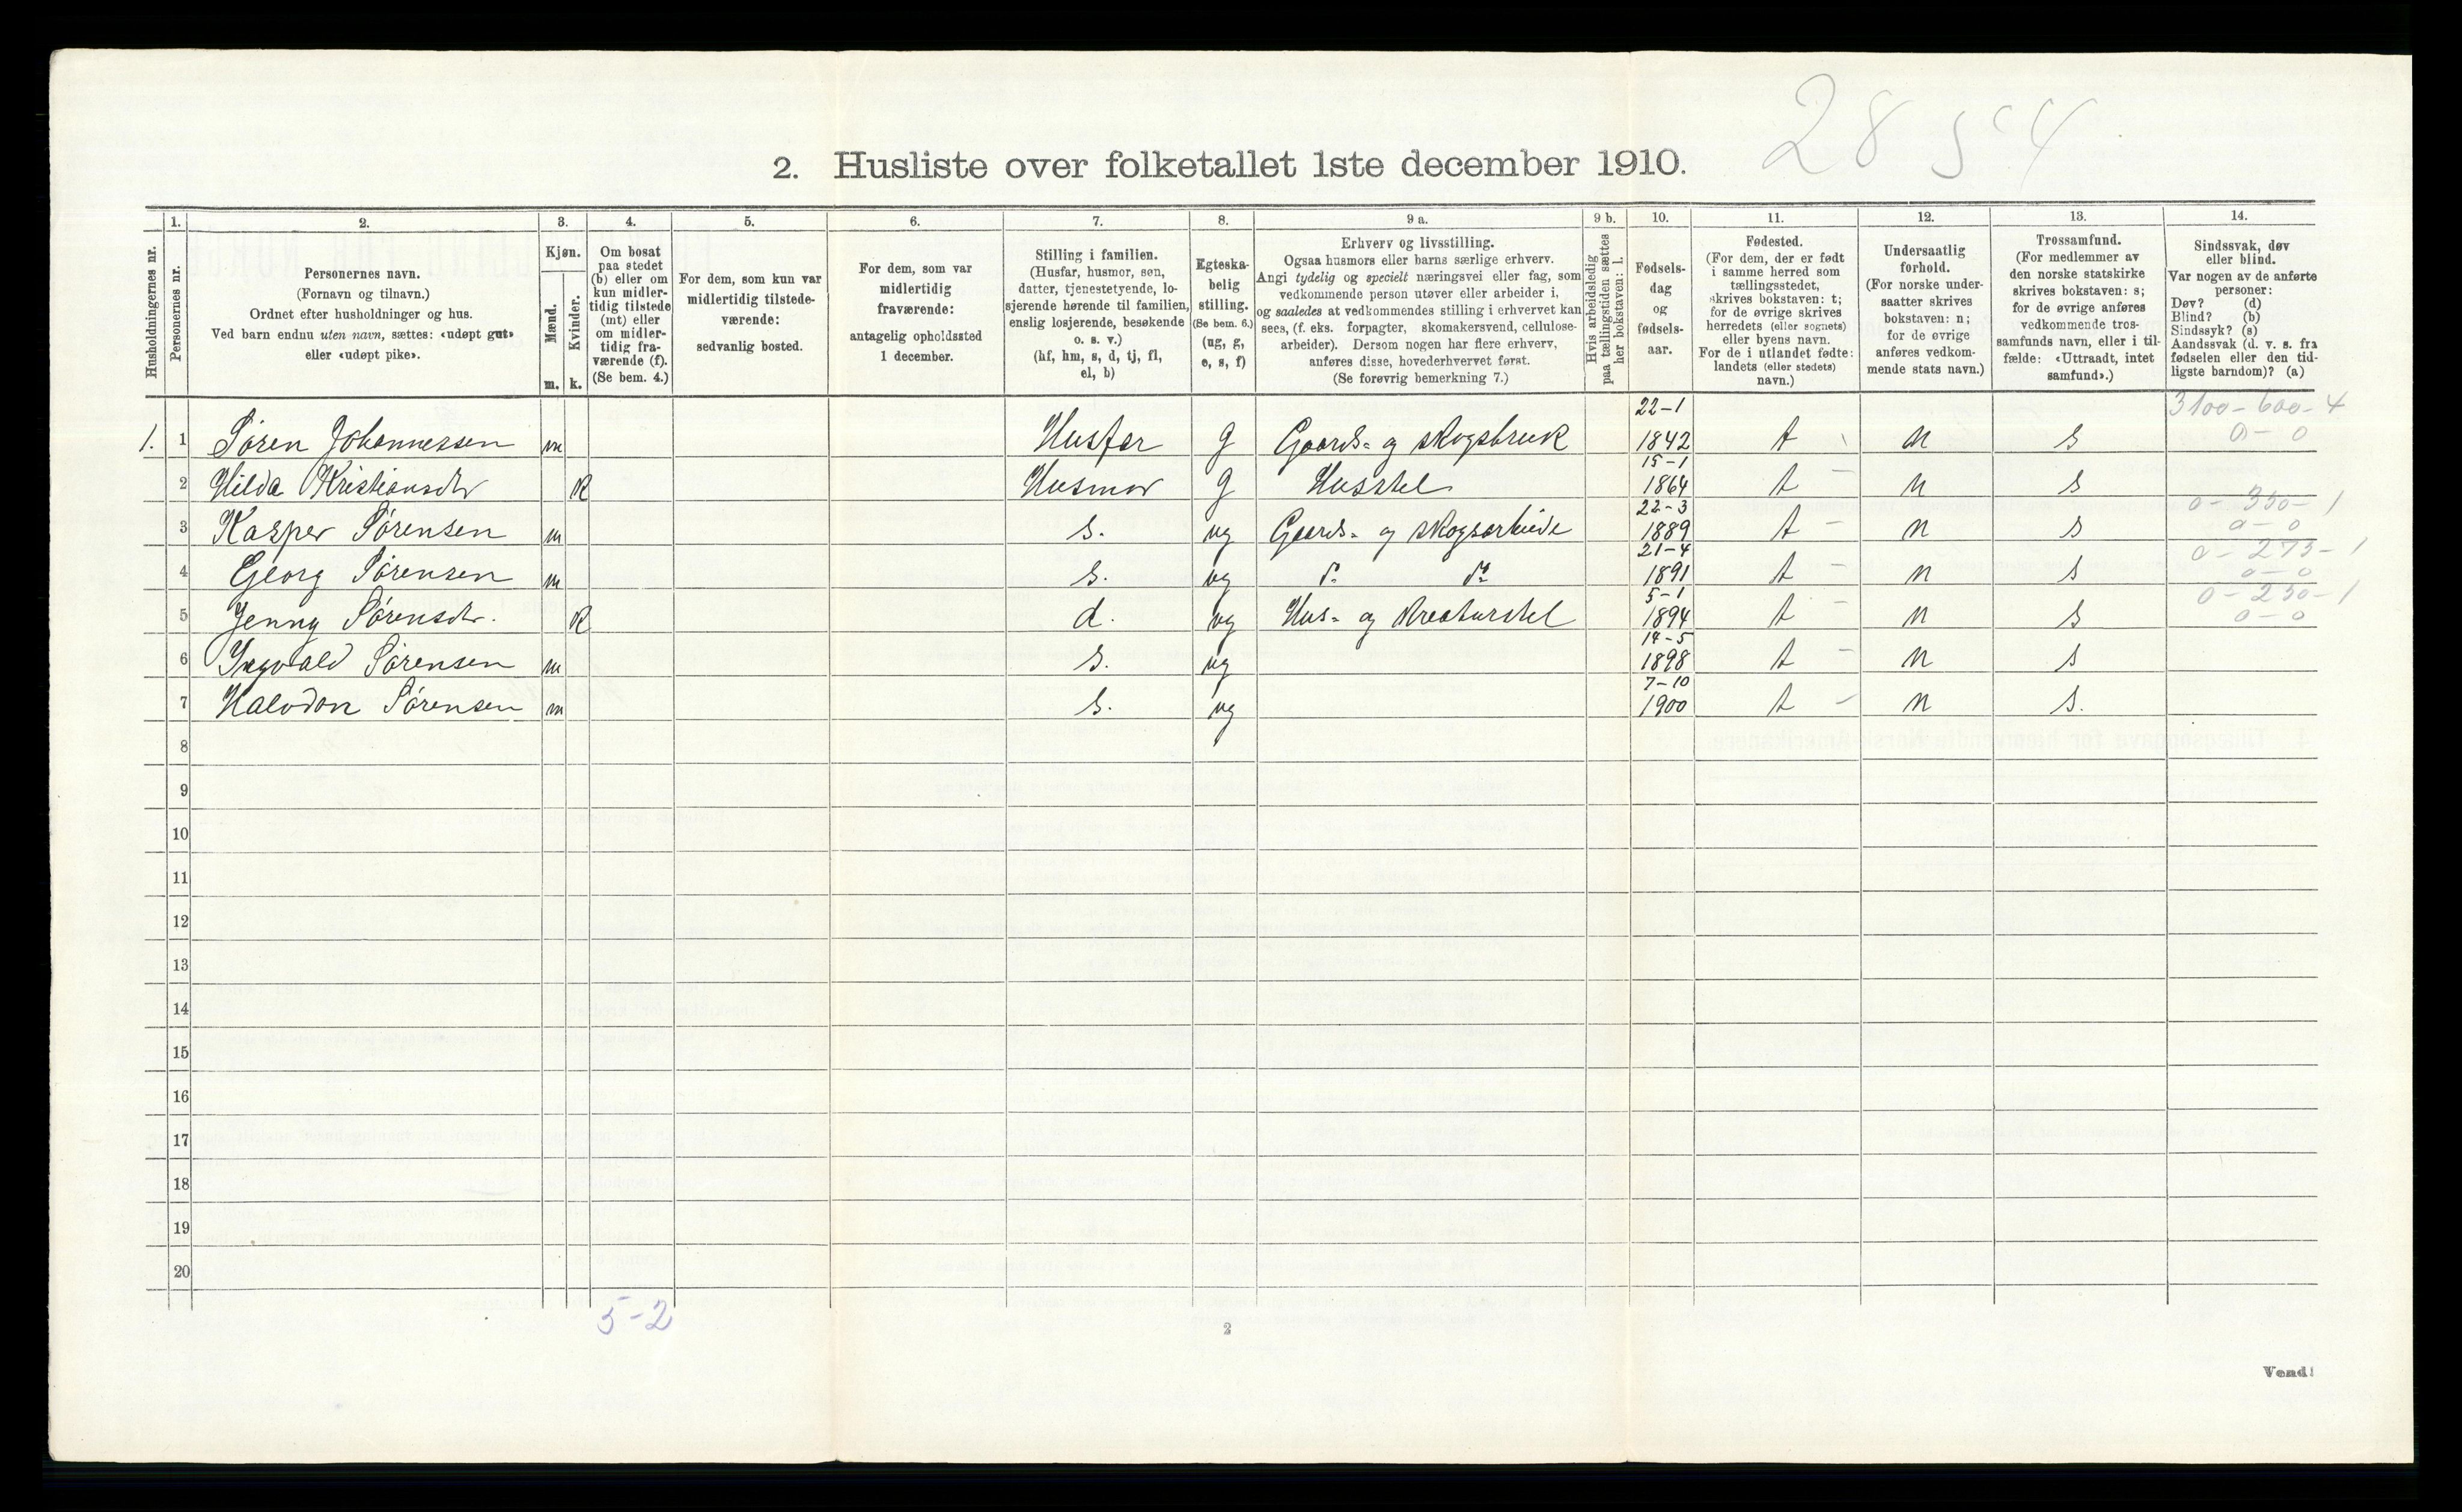 28 54
2. Husliste over folketallet 1ste december 1910.
Husholdningernes nr.
1.
Personernes nr.
2.
Personernes navn.
(Fornavn og tilnavn.)
Ordnet efter husholdninger og hus.
Ved barn endnu uten navn, sættes: «udøpt gut»
eller «udøpt pike».
3.
Kjøn.
Mænd.
Kvinder.
m. k.
4.
Om bosat
paa stedet
(b) eller om
kun midler-
tidig tilstede
(mt) eller
om midler-
tidig fra-
værende (f).
(Se bem. 4.)
5.
For dem, som kun var
midlertidig tilstede-
værende:
sedvanlig bosted.
6.
For dem, som var
midlertidig
fraværende:
antagelig opholdssted
1 december.
7.
Stilling i familien.
(Husfar, husmor, søn,
datter, tjenestetyende, lo-
sjerende hørende til familien,
enslig losjerende, besøkende
o. s. v.)
(hf, hm, s, d, tj, fl,
el, b)
8.
Egteska-
belig
stilling.
(Se bem. 6.)
(ug, g,
e, s, f)
9 a.
Erhverv og livsstilling.
Ogsaa husmors eller barns særlige erhverv.
Angi tydelig og specielt næringsvei eller fag, som
vedkommende person utøver eller arbeider i,
og saaledes at vedkommendes stilling i erhvervet kan
sees, (f. eks. forpagter, skomakersvend, cellulose-
arbeider). Dersom nogen har flere erhverv,
anføres disse, hovederhvervet først.
(Se forøvrig bemerkning 7.)
9 b.
Hvis arbeidsledig
paa tællingstiden sættes
her bokstaven: l.
10.
Fødsels-
dag
og
fødsels-
aar.
11.
Fødested.
(For dem, der er født
i samme herred som
tællingsstedet,
skrives bokstaven: t;
for de øvrige skrives
herredets (eller sognets)
eller byens navn.
For de i utlandet fødte:
landets (eller stedets)
navn.)
12.
Undersaatlig
forhold.
(For norske under-
saatter skrives
bokstaven: n;
for de øvrige
anføres vedkom-
mende stats navn.)
13.
Trossamfund.
(For medlemmer av
den norske statskirke
skrives bokstaven: s;
for de øvrige anføres
vedkommende tros-
samfunds navn, eller i til-
fælde: «Uttraadt, intet
samfund».)
14.
Sindssvak, døv
eller blind.
Var nogen av de anførte
personer:
Døv? (d)
Blind? (b)
Sindssyk? (s)
Aandssvak (d. v. s. fra
fødselen eller den tid-
ligste barndom)? (a)
22-1 3100-600-4
1. 1 Søren Johannessen m Husfar g Gaards- og skogsbruk 1842 t n s 0-0
15-1
2 Hilda Kristiansdtr k Husmor g Husstel 1864 t n s
22-3 0-350-1
3 Kasper Sørensen m s. ug Gaards- og skogsarbeide 1889 t n s 0-0
21-4 0-275-1
4 Georg Sørensen m s. ug do do 1891 t n s 0-0
5-1 0-250-1
5 Jenny Sørensdtr. k d. ug Hus- og Kreaturstel 1894 t n s 0-0
14-5
6 Ingvald Sørensen m s. ug 1898 t n s
7-10
7 Halvdan Sørensen m s. ug 1900 t n s.
8
9
10
11
12
13
14
15
16
17
18
19
20
5-2
2
Vend!